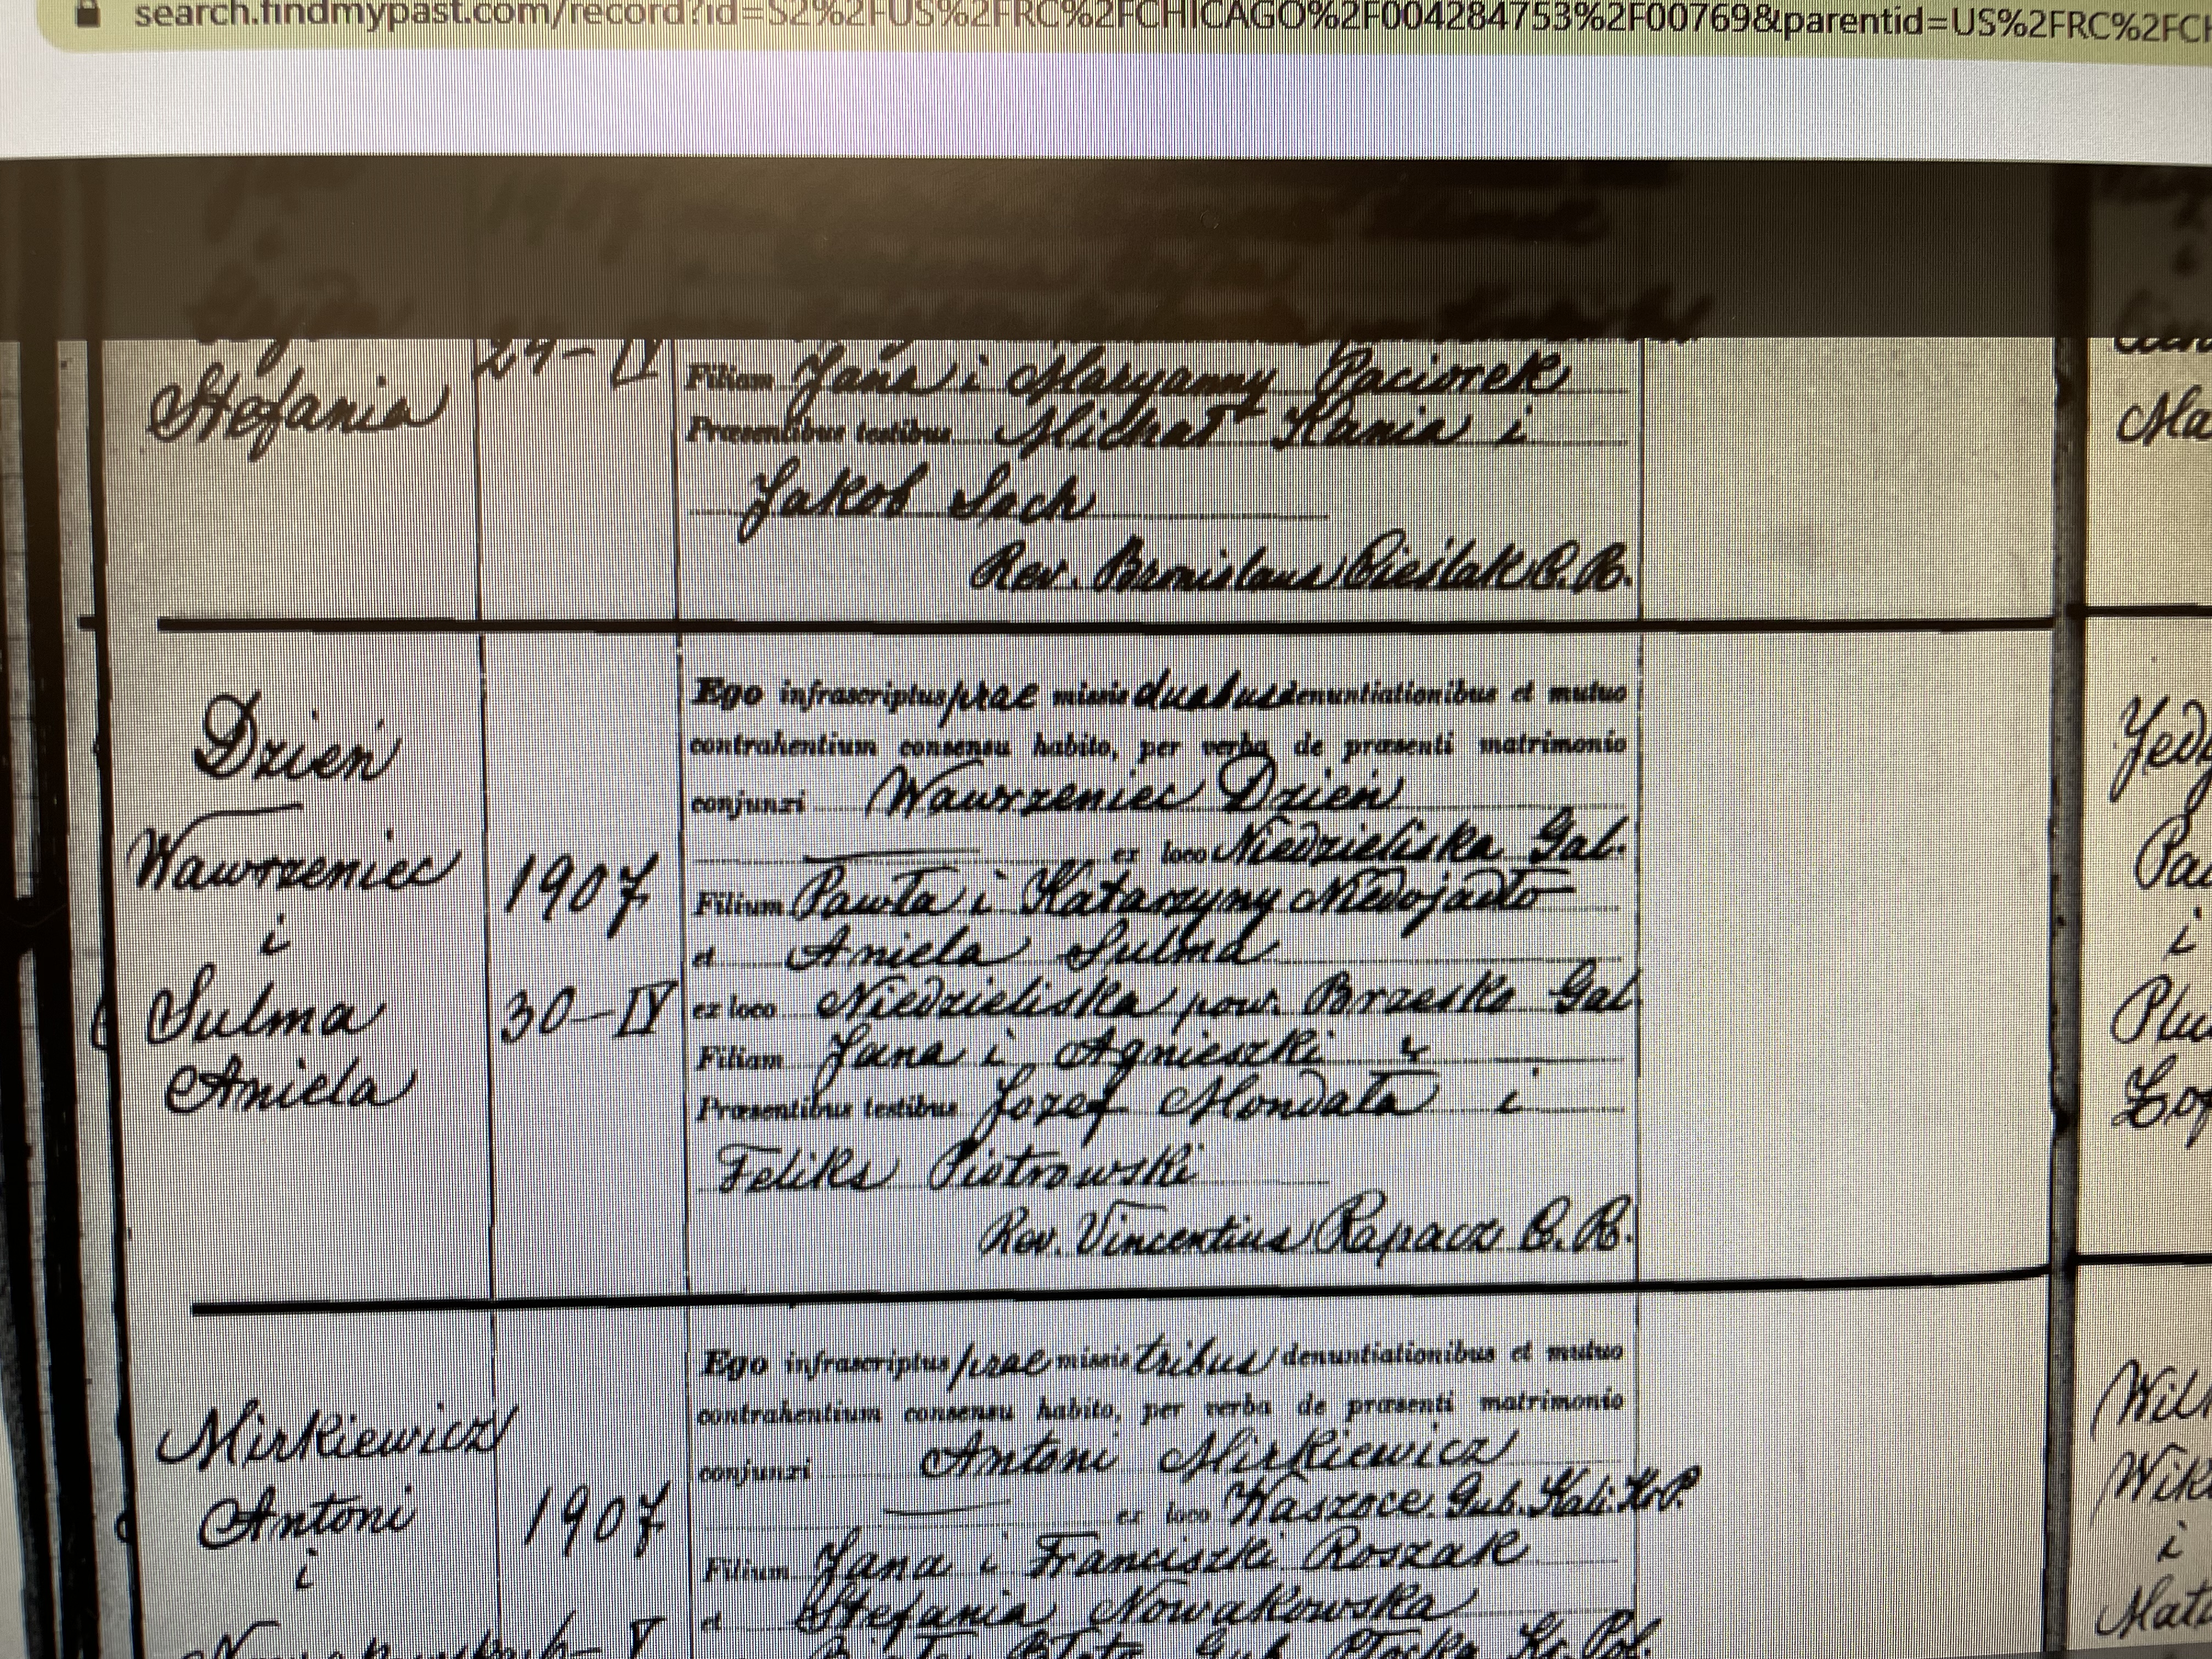 search.findmypast.com/record?id=S2%2FUS%2FRC%2FCHICAGO%2F004284753%2F00769&parentid=US%2FRC%2FCH
Stefania
29-IV
Filiam Jana i Maryanny Paciorek
Præsentibus testibus Michał Kania i
Jakob Sach
Rev. Bronislaus Cieślak C.R.
Dzień
Wawrzeniec
i
Sulma
Aniela
1907
30-IV
Ego infrascriptus prae missis duabus denuntiationibus et mutuo
contrahentium consensu habito, per verba de præsenti matrimonio
conjunxi Wawrzeniec Dzień
ex loco Niedzieliska Gal.
Filium Pawła i Katarzyny Niedojadło
et Aniela Sulma
ex loco Niedzieliska pow. Brzesko Gal
Filiam Jana i Agnieszki
Præsentibus testibus Jozef Mondała i
Feliks Piotrowski
Rev. Vincentius Rapacz C.R.
Mirkiewicz
Antoni
i
1907
Ego infrascriptus prae missis tribus denuntiationibus et mutuo
contrahentium consensu habito, per verba de præsenti matrimonio
conjunxi Antoni Mirkiewicz
ex loco Waszoce. Gub. Kali. Kr.P.
Filium Jana i Franciszki Roszak
et Stefania Nowakowska
Ma
i
Plu
Zof
Wik
i